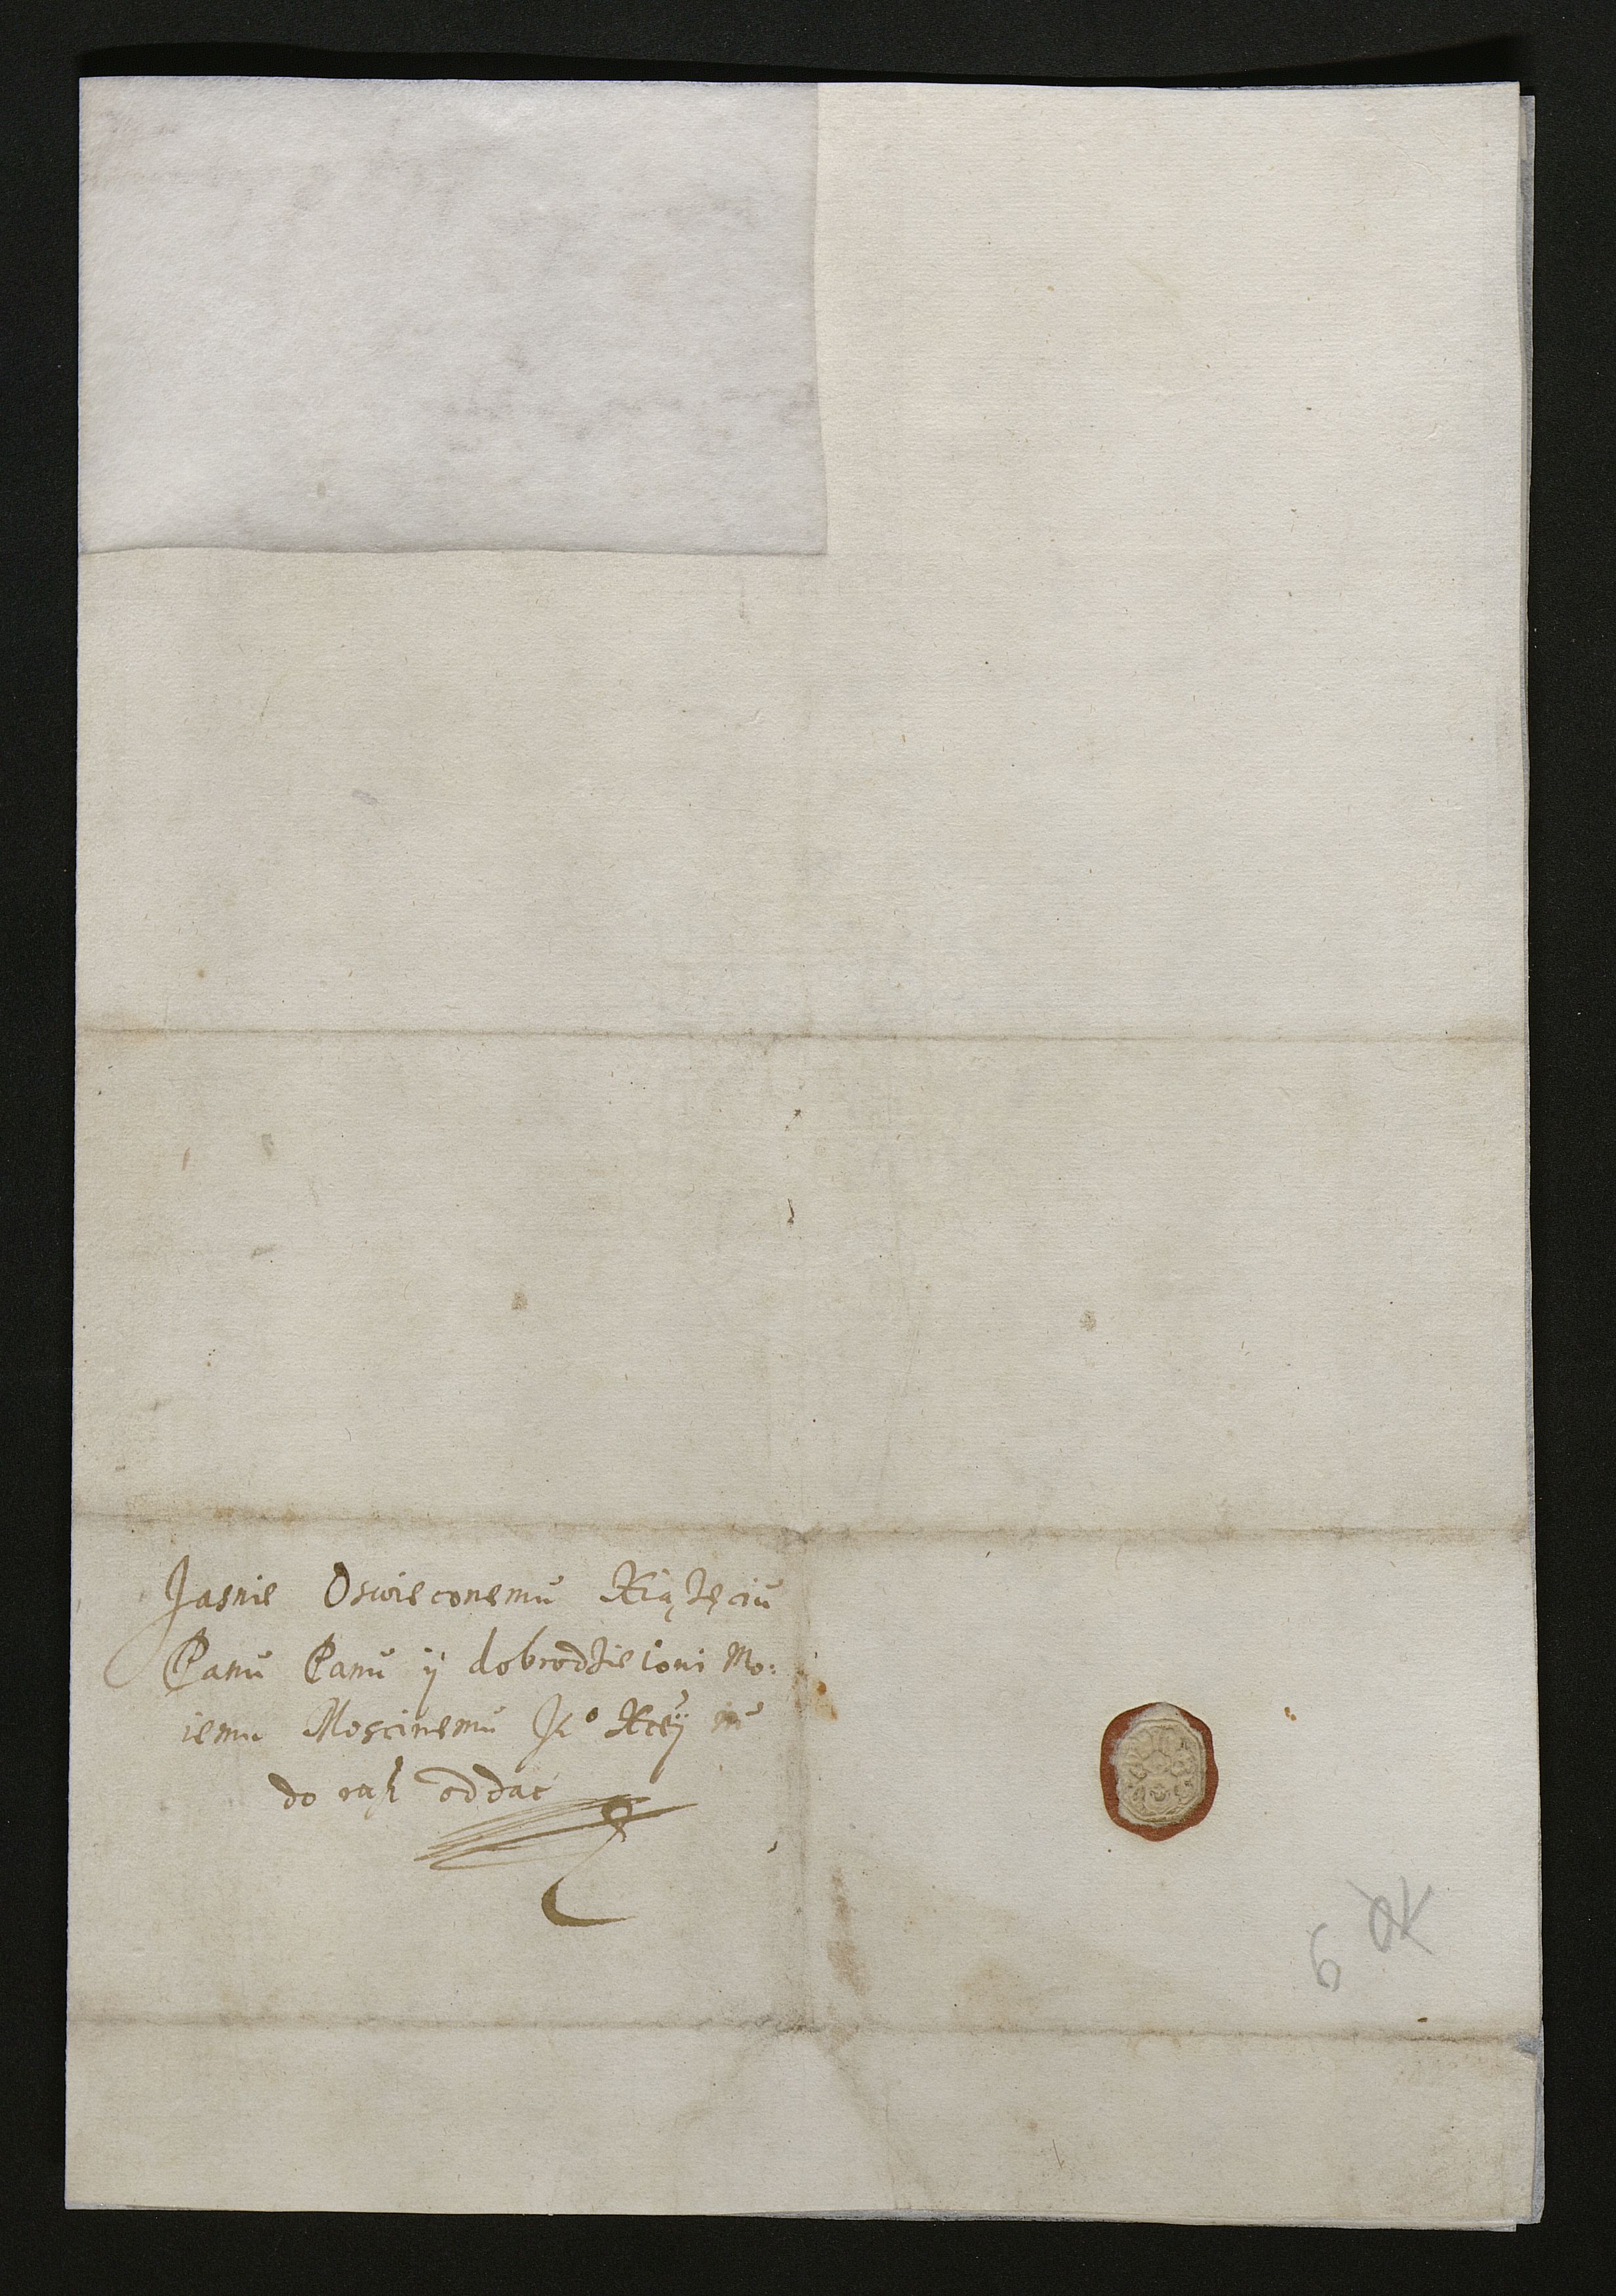 Jasnie Oswieconemu Kiążęciu
Panu Panu ÿ dobrodzieiowi Mo:
iemu Mosciwemu Je° Xcej m
do rąk oddac
6